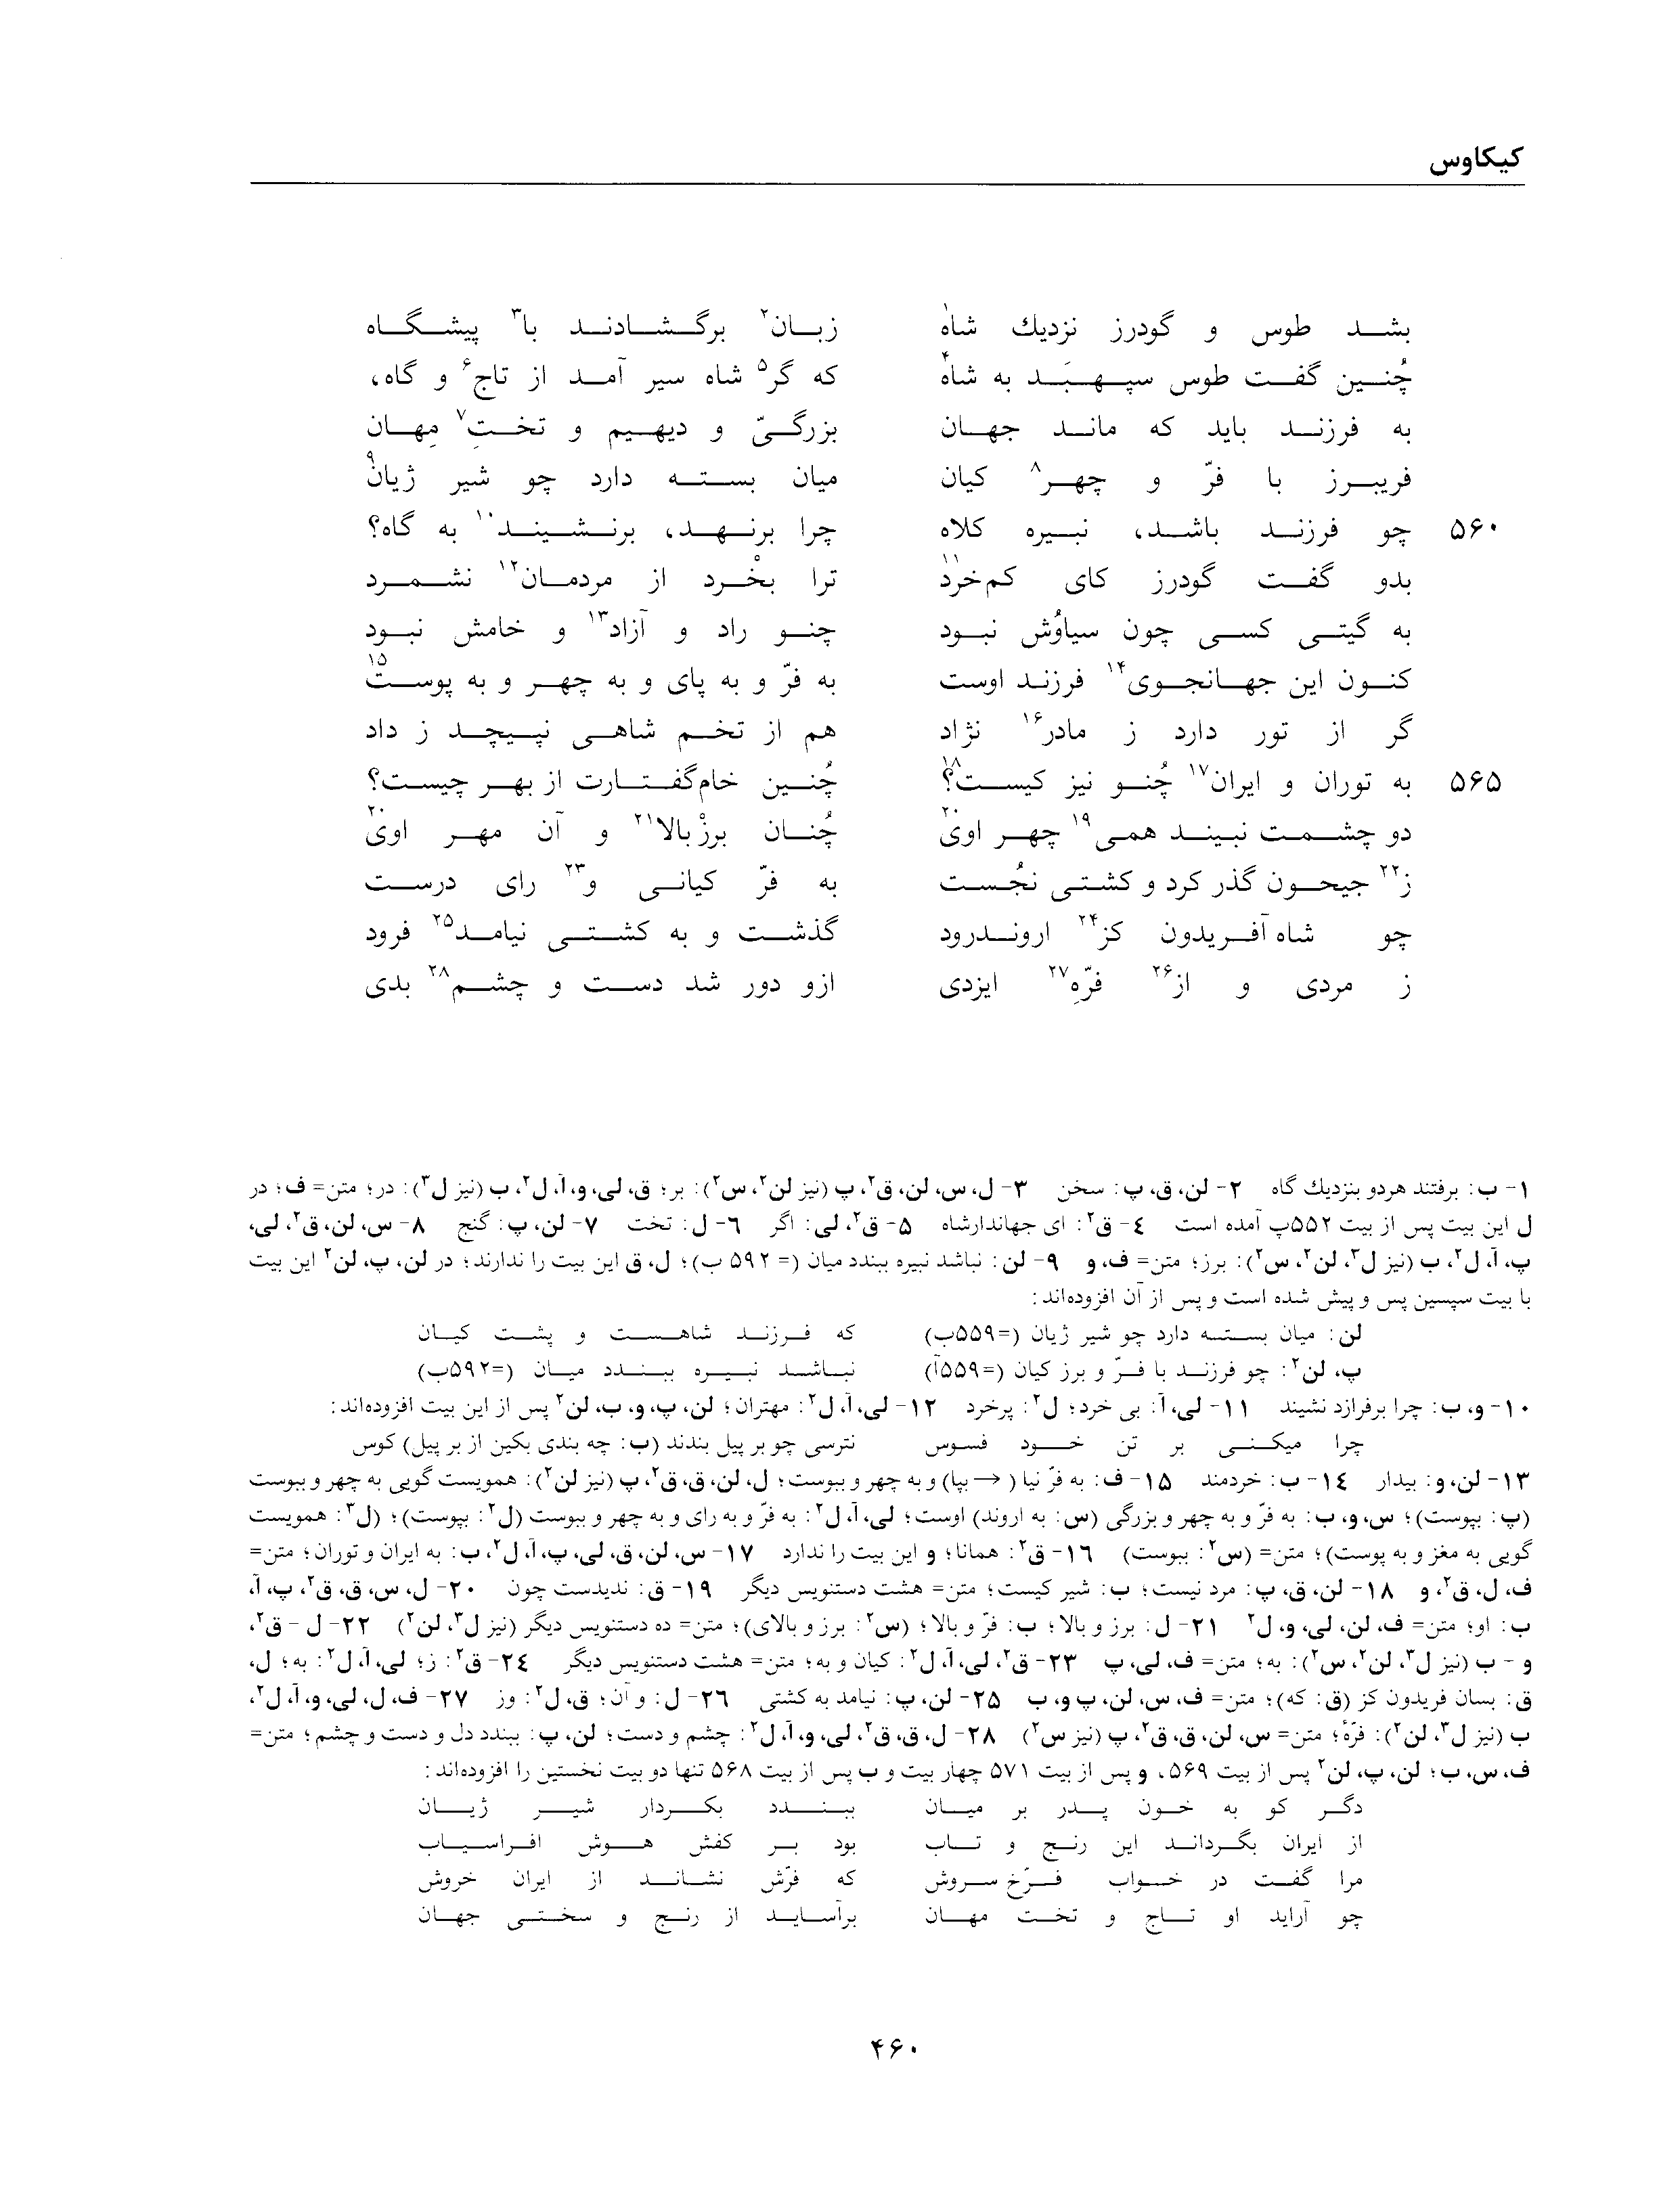 کیکاوس
بشد طوس و گودرز نزدیك شاه۱ زبان۲ برگشادند با۳ پیشگاه
چُنین گفت طوس سپهبَد به شاه۴ که گر۵ شاه سیر آمد از تاج۶ و گاه،
به فرزند باید که ماند جهان بزرگیّ و دیهیم و تختِ۷ مِهان
فریبرز با فرّ و چهر۸ کیان میان بسته دارد چو شیر ژیان۹
۵۶۰ چو فرزند باشد، نبیره کلاه چرا برنهد، برنشیند۱۰ به گاه؟
بدو گفت گودرز کای کم‌خرد۱۱ ترا بخْرد از مردمان۱۲ نشمرد
به گیتی کسی چون سیاوُش نبود چنو راد و آزاد۱۳ و خامش نبود
کنون این جهانجوی۱۴ فرزند اوست به فرّ و به پای و به چهر و به پوست۱۵
گر از تور دارد ز مادر۱۶ نژاد هم از تخم شاهی نپیچد ز داد
۵۶۵ به توران و ایران۱۷ چُنو نیز کیست؟۱۸ چُنین خام‌گفتارت از بهر چیست؟
دو چشمت نبیند همی۱۹ چهر اوی۲۰ چُنان برزْبالا۲۱ و آن مهر اوی۲۰
ز۲۲ جیحون گذر کرد و کشتی نجُست به فرّ کیانی و۲۳ رای درست
چو شاه آفریدون کز۲۴ اروندرود گذشت و به کشتی نیامد۲۵ فرود
ز مردی و از۲۶ فرّهِ۲۷ ایزدی ازو دور شد دست و چشم۲۸ بدی
۱- ب: برفتند هردو بنزدیك گاه ۲- لن، ق، پ: سخن ۳- ل، س، لن، ق۲، پ (نیز لن۲، س۲): بر؛ ق، لی، و، آ، ل۲، ب (نیز ل۳): در؛ متن= ف؛ در
ل این بیت پس از بیت ۵۵۲پ آمده است ٤- ق۲: ای جهاندارشاه ۵- ق۲، لی: اگر ٦- ل: تخت ۷- لن، پ: گنج ۸- س، لن، ق۲، لی،
پ، آ، ل۲، ب (نیز ل۳، لن۲، س۲): برز؛ متن= ف، و ۹- لن: نباشد نبیره ببندد میان (= ۵۹۲ ب)؛ ل، ق این بیت را ندارند؛ در لن، پ، لن۲ این بیت
با بیت سپسین پس و پیش شده است و پس از آن افزوده‌اند:
لن: میان بسته دارد چو شیر ژیان (=۵۵۹ب) که فرزند شاهست و پشت کیان
پ، لن۲: چو فرزند با فرّ و برز کیان (=۵۵۹آ) نباشد نبیره ببندد میان (=۵۹۲ب)
۱۰- و، ب: چرا برفرازد نشیند ۱۱- لی، آ: بی خرد؛ ل۲: پرخرد ۱۲- لی، آ، ل۲: مهتران؛ لن، پ، و، ب، لن۲ پس از این بیت افزوده‌اند:
چرا میکنی بر تن خود فسوس نترسی چو بر پیل بندند (ب: چه بندی بکین از بر پیل) کوس
۱۳- لن، و: بیدار ۱٤- ب: خردمند ۱۵- ف: به فرّ نیا (→ بپا) و به چهر و ببوست؛ ل، لن، ق، ق۲، پ (نیز لن۲): همویست گویی به چهر و ببوست
(پ: بپوست)؛ س، و، ب: به فرّ و به چهر و بزرگی (س: به اروند) اوست؛ لی، آ، ل۲: به فرّ و به رای و به چهر و ببوست (ل۲: بپوست)؛ (ل۳: همویست
گویی به مغز و به پوست)؛ متن= (س۲: ببوست) ۱٦- ق۲: همانا؛ و این بیت را ندارد ۱۷- س، لن، ق، لی، پ، آ، ل۲، ب: به ایران و توران؛ متن=
ف، ل، ق۲، و ۱۸- لن، ق، پ: مرد نیست؛ ب: شیر کیست؛ متن= هشت دستنویس دیگر ۱۹- ق: ندیدست چون ۲۰- ل، س، ق، ق۲، پ، آ،
ب: او؛ متن= ف، لن، لی، و، ل۲ ۲۱- ل: برز و بالا؛ ب: فرّ و بالا؛ (س۲: برز و بالای)؛ متن= ده دستنویس دیگر (نیز ل۳، لن۲) ۲۲- ل - ق۲،
و - ب (نیز ل۳، لن۲، س۲): به؛ متن= ف، لی، پ ۲۳- ق۲، لی، آ، ل۲: کیان و به؛ متن= هشت دستنویس دیگر ۲٤- ق۲: ز؛ لی، آ، ل۲: به؛ ل،
ق: بسان فریدون کز (ق: که)؛ متن= ف، س، لن، پ و، ب ۲۵- لن، پ: نیامد به کشتی ۲٦- ل: و آن؛ ق، ل۲: وز ۲۷- ف، ل، لی، و، آ، ل۲،
ب (نیز ل۳، لن۲): فرّهٔ؛ متن= س، لن، ق، ق۲، پ (نیز س۲) ۲۸- ل، ق، ق۲، لی، و، آ، ل۲: چشم و دست؛ لن، پ: ببندد دل و دست و چشم؛ متن=
ف، س، ب؛ لن، پ، لن۲ پس از بیت ۵۶۹، و پس از بیت ۵۷۱ چهار بیت و ب پس از بیت ۵۶۸ تنها دو بیت نخستین را افزوده‌اند:
دگر کو به خون پدر بر میان ببندد بکردار شیر ژیان
از ایران بگرداند این رنج و تاب بود بر کفش هوش افراسیاب
مرا گفت در خواب فرّخ سروش که فرّش نشاند از ایران خروش
چو آراید او تاج و تخت مهان برآساید از رنج و سختی جهان
۴۶۰